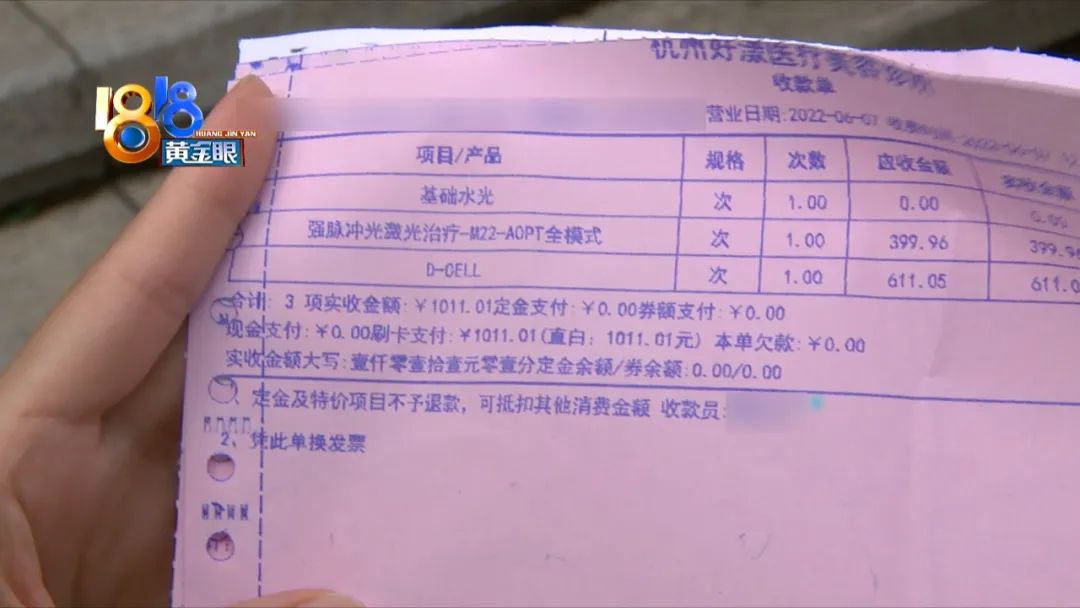 1818
HUANG JIN YAN
黄金眼
杭州好漾医疗美容
收款单
营业日期:2022-06-07
项目/产品 规格 次数 应收金额 实收金额
基础水光 次 1.00 0.00 0.00
强脉冲光激光治疗-M22-AOPT全模式 次 1.00 399.96 399.96
D-CELL 次 1.00 611.05 611.0
合计: 3 项实收金额:￥1011.01定金支付:￥0.00券额支付:￥0.00
现金支付:￥0.00刷卡支付:￥1011.01(直白: 1011.01元) 本单欠款:￥0.00
实收金额大写:壹仟零壹拾壹元零壹分定金余额/券余额:0.00/0.00
、定金及特价项目不予退款,可抵扣其他消费金额 收款员:
2、凭此单换发票